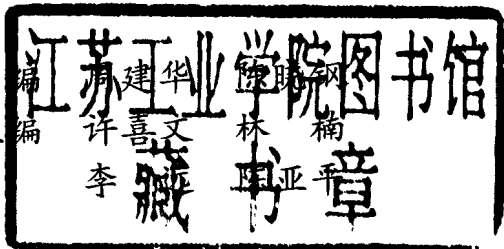 江苏工业学院图书馆
藏书章
编 建华 陈晓钢
编 许喜文 林楠
李 亚平